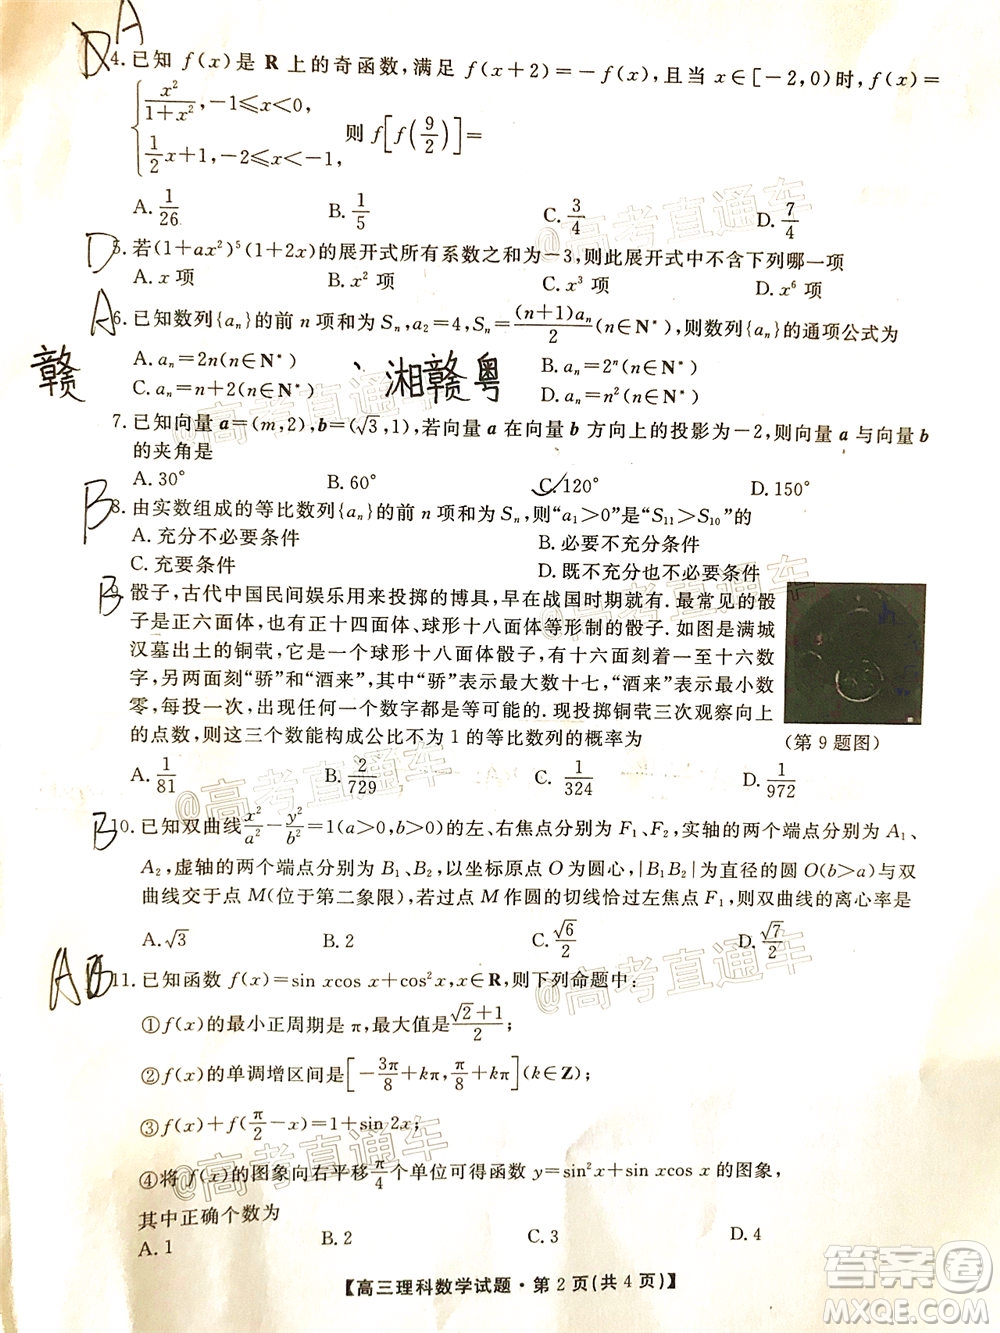 A
D
4.已知 f(x)是 R 上的奇函数,满足 f(x+2)=-f(x),且当 x∈[-2,0)时,f(x)=
{x²/(1+x²),-1≤x<0,
1/2 x+1,-2≤x<-1,
则 f[f(9/2)]=
A. 1/26 B. 1/5 C. 3/4 D. 7/4
D
5.若(1+ax²)⁵(1+2x)的展开式所有系数之和为-3,则此展开式中不含下列哪一项
A. x 项 B. x² 项 C. x³ 项 D. x⁶ 项
A
6.已知数列{aₙ}的前 n 项和为 Sₙ,a₂=4,Sₙ=(n+1)aₙ/2(n∈N*),则数列{aₙ}的通项公式为
A. aₙ=2n(n∈N*) B. aₙ=2ⁿ(n∈N*)
C. aₙ=n+2(n∈N*) D. aₙ=n²(n∈N*)
赣
、湘赣粤
7.已知向量 a=(m,2),b=(√3,1),若向量 a 在向量 b 方向上的投影为-2,则向量 a 与向量 b
的夹角是
A. 30° B. 60° C. 120° D. 150°
B
8.由实数组成的等比数列{aₙ}的前 n 项和为 Sₙ,则“a₁>0”是“S₁₁>S₁₀”的
A. 充分不必要条件 B. 必要不充分条件
C. 充要条件 D. 既不充分也不必要条件
B
骰子,古代中国民间娱乐用来投掷的博具,早在战国时期就有.最常见的骰
子是正六面体,也有正十四面体、球形十八面体等形制的骰子.如图是满城
汉墓出土的铜茕,它是一个球形十八面体骰子,有十六面刻着一至十六数
字,另两面刻“骄”和“酒来”,其中“骄”表示最大数十七,“酒来”表示最小数
零,每投一次,出现任何一个数字都是等可能的.现投掷铜茕三次观察向上
的点数,则这三个数能构成公比不为 1 的等比数列的概率为
(第 9 题图)
A. 1/81 B. 2/729 C. 1/324 D. 1/972
B
10.已知双曲线x²/a²-y²/b²=1(a>0,b>0)的左、右焦点分别为 F₁、F₂,实轴的两个端点分别为 A₁、
A₂,虚轴的两个端点分别为 B₁、B₂,以坐标原点 O 为圆心,|B₁B₂|为直径的圆 O(b>a)与双
曲线交于点 M(位于第二象限),若过点 M 作圆的切线恰过左焦点 F₁,则双曲线的离心率是
A. √3 B. 2 C. √6/2 D. √7/2
A
11.已知函数 f(x)=sin xcos x+cos²x,x∈R,则下列命题中:
①f(x)的最小正周期是 π,最大值是(√2+1)/2;
②f(x)的单调增区间是[-3π/8+kπ,π/8+kπ](k∈Z);
③f(x)+f(π/2-x)=1+sin 2x;
④将 f(x)的图象向右平移π/4个单位可得函数 y=sin²x+sin xcos x 的图象,
其中正确个数为
A. 1 B. 2 C. 3 D. 4
【高三理科数学试题·第 2 页(共 4 页)】
@高考直通车
@高考直通车
@高考直通车
@高考直通车
@高考直通车
@高考直通车
答案圈
MXQE.COM